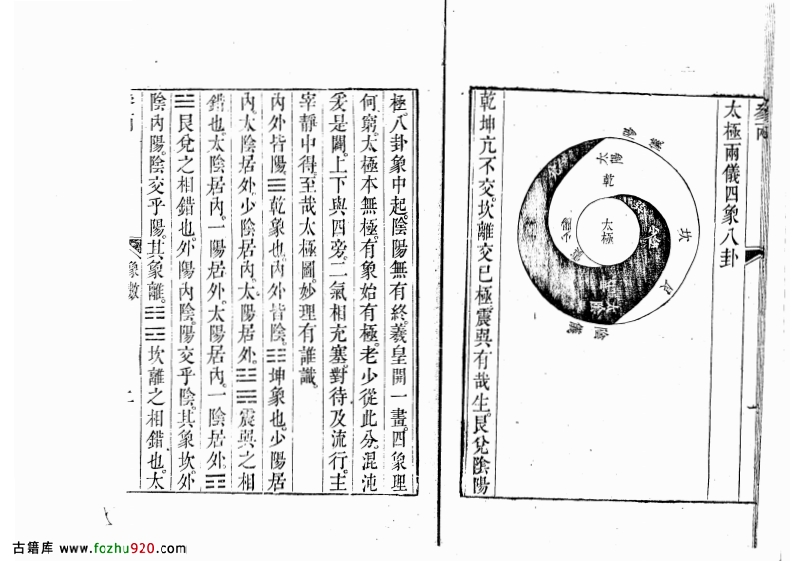 太極兩儀四象八卦
陽儀
太陽
乾
坎
艮
少陰
太極
陰儀
乾坤亢不交。坎離交已極。震巽有哉生。艮兌陰陽
極。八卦象中起。陰陽無有終。羲皇開一畫。四象理
何窮。太極本無極。有象始有極。老少從此分。混沌
爰是闢。上下與四旁。二氣相充塞。對待及流行。主
宰靜中得。至哉太極圖。妙理有誰識。
內外皆陽。☰乾象也。內外皆陰。☷坤象也。少陽居
內。太陰居外。少陰居內。太陽居外。☳☴震巽之相
錯也。太陰居內。一陽居外。太陽居內。一陰居外。☶
☱艮兌之相錯也。外陽內陰。陽交乎陰。其象坎。外
陰內陽。陰交乎陽。其象離。☵☲坎離之相錯也。太
象數
古籍库 www.fozhu920.com